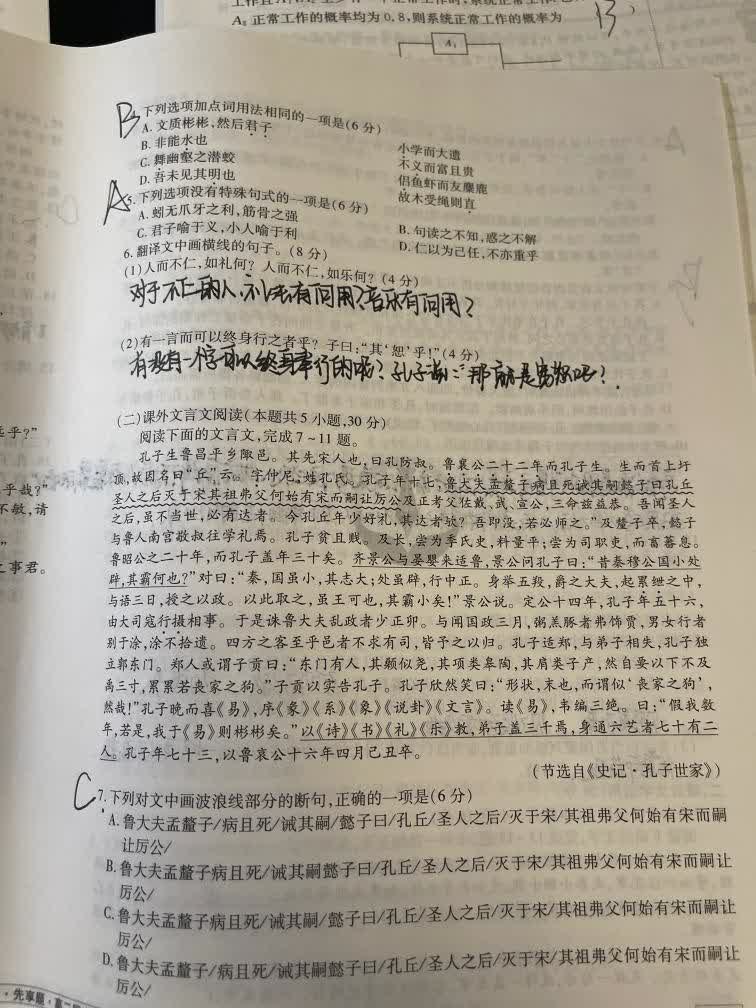 A₂ 正常工作的概率均为 0.8,则系统正常工作的概率为
13
A₁
B
下列选项加点词用法相同的一项是(6 分)
A. 文质彬彬,然后君子 小学而大遗
B. 非能水也 不义而富且贵
C. 舞幽壑之潜蛟 侣鱼虾而友麋鹿
D. 吾未见其明也 故木受绳则直
A
5. 下列选项没有特殊句式的一项是(6 分)
A. 蚓无爪牙之利,筋骨之强 B. 句读之不知,惑之不解
C. 君子喻于义,小人喻于利 D. 仁以为己任,不亦重乎
6. 翻译文中画横线的句子。(8 分)
(1)人而不仁,如礼何?人而不仁,如乐何?(4 分)
对于不仁的人,礼法有何用?音乐有何用?
(2)有一言而可以终身行之者乎?子曰:“其‘恕’乎!”(4 分)
有没有一个字可以终身奉行的呢?孔子说:“那就是宽恕吧?
(二)课外文言文阅读(本题共 5 小题,30 分)
阅读下面的文言文,完成 7~11 题。
孔子生鲁昌平乡陬邑。其先宋人也,曰孔防叔。鲁襄公二十二年而孔子生。生而首上圩
顶,故因名曰“丘”云。字仲尼,姓孔氏。孔子年十七,鲁大夫孟釐子病且死诫其嗣懿子曰孔丘
圣人之后灭于宋其祖弗父何始有宋而嗣让厉公及正考父佐戴、武、宣公,三命兹益恭。吾闻圣人
之后,虽不当世,必有达者。今孔丘年少好礼,其达者欤?吾即没,若必师之。”及釐子卒,懿子
与鲁人南宫敬叔往学礼焉。孔子贫且贱。及长,尝为季氏史,料量平;尝为司职吏,而畜蕃息。
鲁昭公之二十年,而孔子盖年三十矣。齐景公与晏婴来适鲁,景公问孔子曰:“昔秦穆公国小处
辟,其霸何也?”对曰:“秦,国虽小,其志大;处虽辟,行中正。身举五羖,爵之大夫,起累绁之中,
与语三日,授之以政。以此取之,虽王可也,其霸小矣!”景公说。定公十四年,孔子年五十六,
由大司寇行摄相事。于是诛鲁大夫乱政者少正卯。与闻国政三月,粥羔豚者弗饰贾,男女行者
别于涂,涂不拾遗。四方之客至乎邑者不求有司,皆予之以归。孔子适郑,与弟子相失,孔子独
立郭东门。郑人或谓子贡曰:“东门有人,其颡似尧,其项类皋陶,其肩类子产,然自要以下不及
禹三寸,累累若丧家之狗。”子贡以实告孔子。孔子欣然笑曰:“形状,末也,而谓似‘丧家之狗’,
然哉!”孔子晚而喜《易》,序《彖》《系》《象》《说卦》《文言》。读《易》,韦编三绝。曰:“假我数
年,若是,我于《易》则彬彬矣。”以《诗》《书》《礼》《乐》教,弟子盖三千焉,身通六艺者七十有二
人。孔子年七十三,以鲁哀公十六年四月己丑卒。
(节选自《史记·孔子世家》)
C
7. 下列对文中画波浪线部分的断句,正确的一项是(6 分)
A. 鲁大夫孟釐子/病且死/诫其嗣/懿子曰/孔丘/圣人之后/灭于宋/其祖弗父何始有宋而嗣
让厉公/
B. 鲁大夫孟釐子病且死/诫其嗣懿子曰/孔丘/圣人之后/灭于宋/其祖弗父何始有宋而嗣让
厉公/
C. 鲁大夫孟釐子病且死/诫其嗣/懿子曰/孔丘/圣人之后/灭于宋/其祖弗父何始有宋而嗣让
厉公/
D. 鲁大夫孟釐子/病且死/诫其嗣懿子曰/孔丘/圣人之后/灭于宋/其祖弗父何始有宋而嗣让
厉公/
乎?”
乎哉?”
不敏,请
”
事君。
·先享题·高二